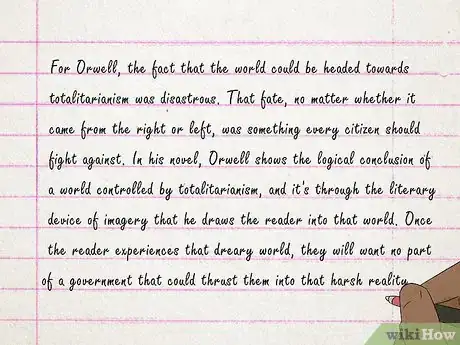 For Orwell, the fact that the world could be headed towards
totalitarianism was disastrous. That fate, no matter whether it
came from the right or left, was something every citizen should
fight against. In his novel, Orwell shows the logical conclusion of
a world controlled by totalitarianism, and it's through the literary
device of imagery that he draws the reader into that world. Once
the reader experiences that dreary world, they will want no part
of a government that could thrust them into that harsh reality
wikiHow